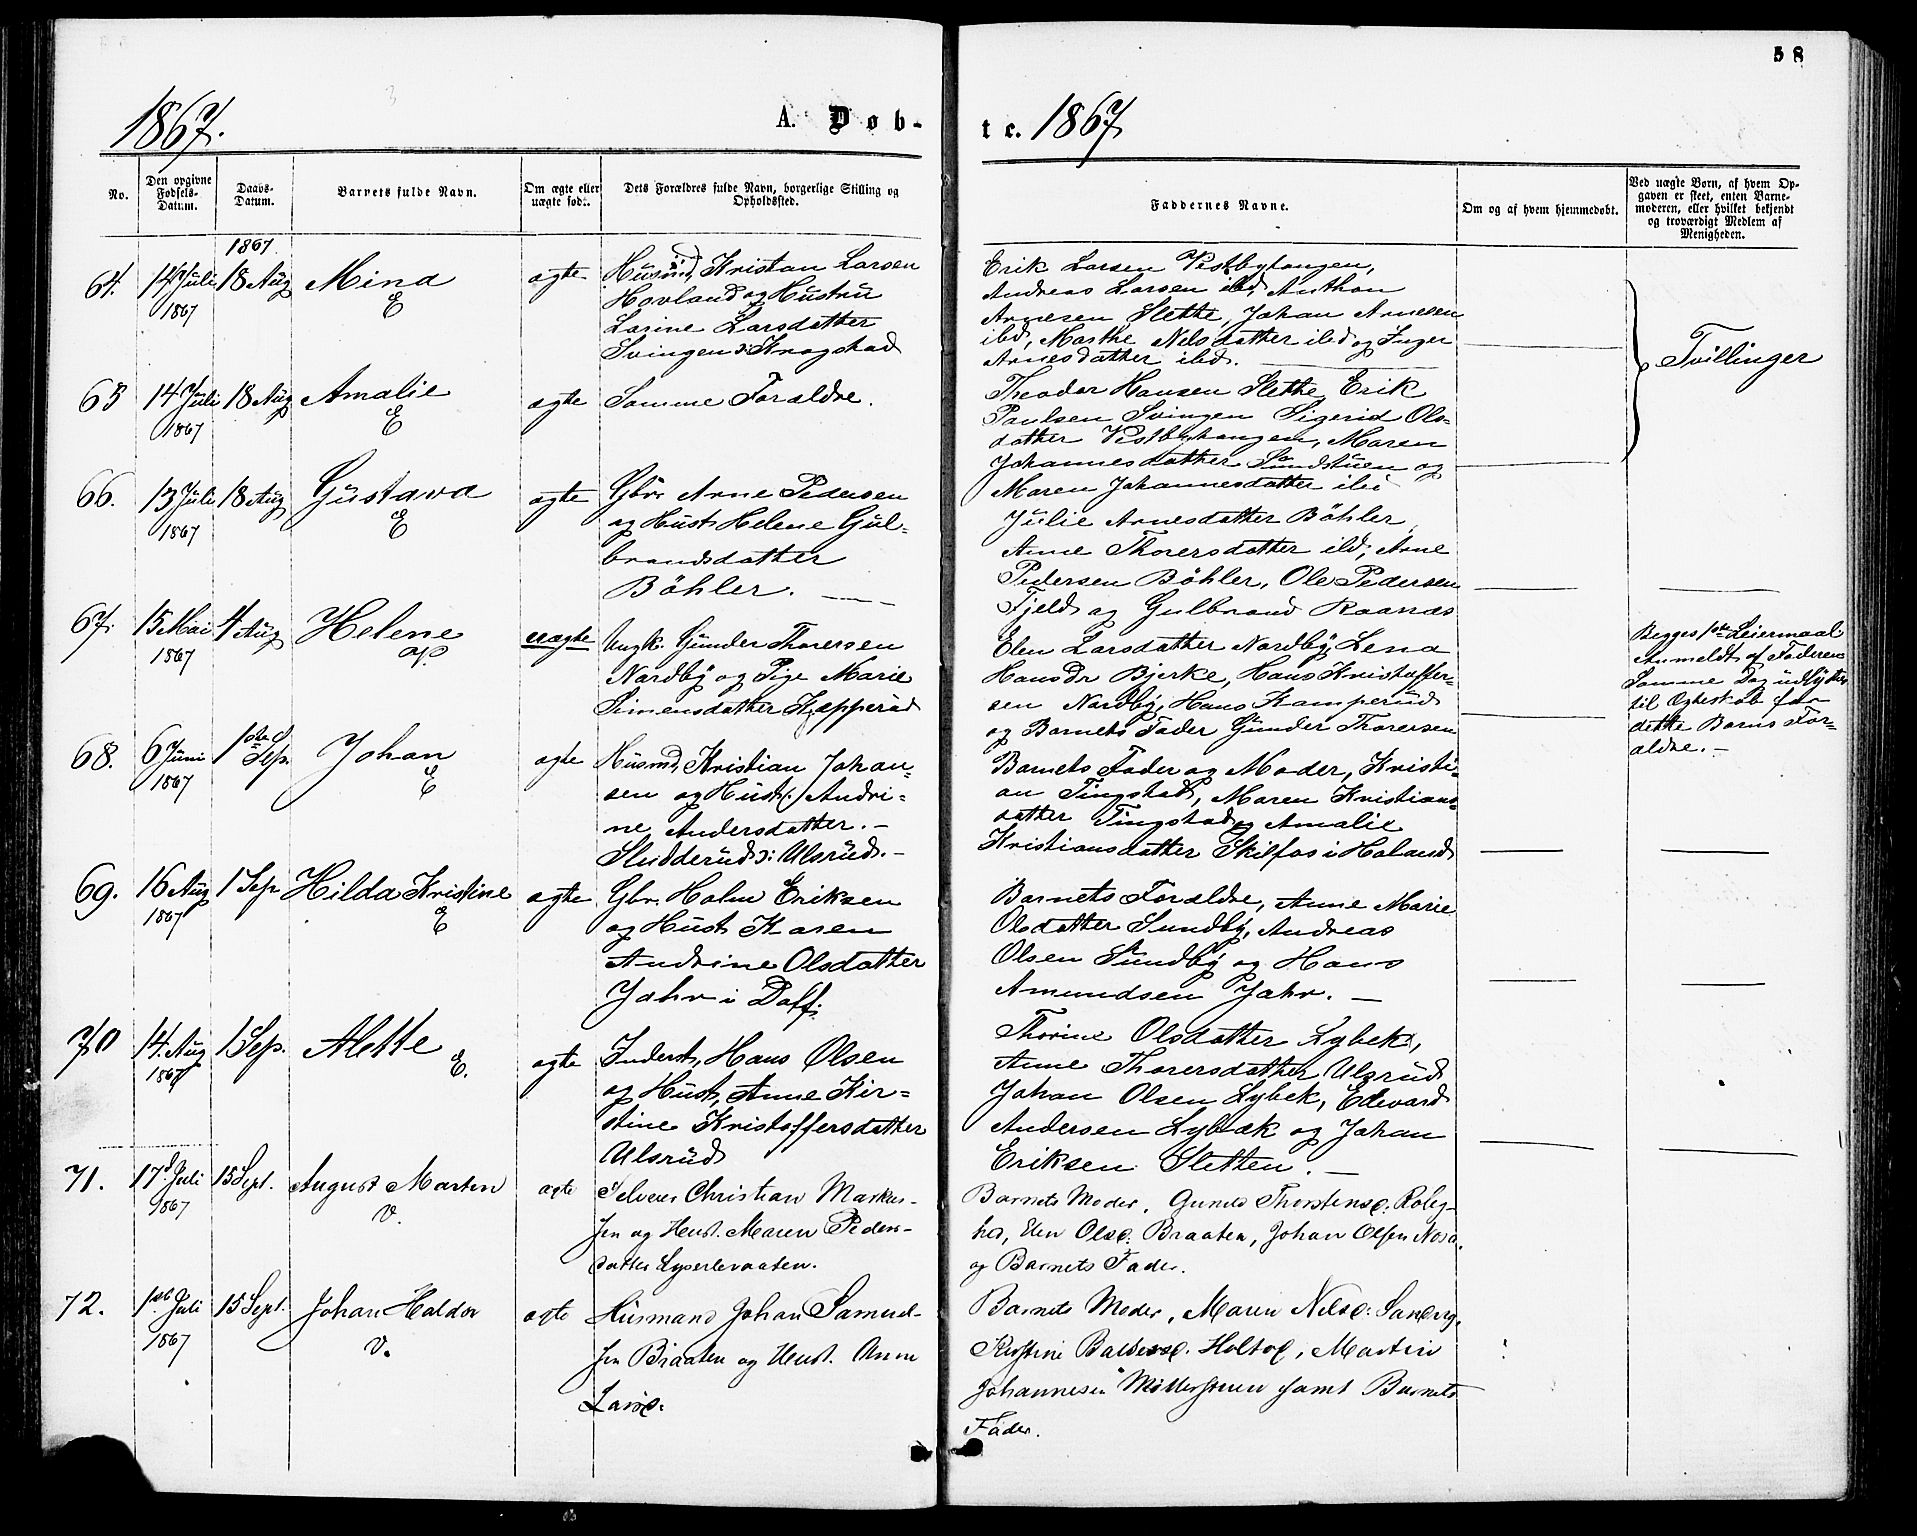 58
1867.
A. Døb-
te. 1867
No.
Den opgivne Fødsels-Datum.
Daabs-Datum.
Barnets fulde Navn.
Om ægte eller uægte født.
Dets Forældres fulde Navn, borgerlige Stilling og Opholdssted.
Faddernes Navne.
Om og af hvem hjemmedøbt.
Ved uægte Børn, af hvem Opgaven er skeet, enten Barnemoderen, eller hvilket bekjendt og troværdigt Medlem af Menigheden.
1867
64. 14 Juli 1867 18 Aug Mina E ægte
Husmd, Kristian Larsen
Hovland og Hustru
Larine Larsdatter
Svingen i Kragstad
Erik Larsen Vestbytangen,
Andreas Larsen ibd, Anthon
Arnesen Slette, Johan Arnesen
ibd, Marthe Nelsdatter ibd og Inger
Arnesdatter ibd.
Tvillinger
65 14 Juli 1867 18 Aug Amalie E ægte
Samme Forældre.
Theodor Hansen Slette, Erik
Paulsen Svingen Sigerid Ols-
datter Vestbytangen, Maren
Johannesdatter Sandstuen og
Maren Johannesdatter ibi
66. 13 Juli 1867 18 Aug Gustava E ægte
Gbr. Arne Pedersen
og Hust. Helene Gul-
brandsdatter
Böhler.
Julie Arnesdatter Böhler,
Anne Thorersdatter ibd, Arne
Pedersen Böhler, Ole Pedersen
Fjeld og Gulbrand Raanås
67. 15 Mai 1867 4 Aug Helene N. uægte
Ungk. Gunder Thorersen
Nordby og Pige Marie
Simensdatter Kapperud
Elen Larsdatter Nordby, Lena
HansDr Bjerke, Hans Kristoffer-
sen Nordby, Hans Kamperud
og Barnets Fader Gunder Thorersen
Begges 1ste Leiermaal
Anmeldt af Faderen
Samme Dag udlyst
til Ægteskab for
dette Barns For-
ældre. -
68. 6 Juni 1867 1ste Sep. Johan E ægte
Husmd, Kristian Johan-
sen og Hust(r) Andri-
ne Andersdatter. -
Sludderud i Ulsrud. -
Barnets Fader og Moder, Kristi-
an Tingstad, Maren Kristians-
datter Tingstad og Amalie
Kristiansdatter Skilfos i Haland
69. 16 Aug 1867 1 Sep Hilda Kristine E ægte
Gbr. Holm Eriksen
og Hust. Karen
Andrine Olsdatter
Jahr i Daff.
Barnets Forældre, Anne Marie
Olsdatter Sundby, Andreas
Olsen Sundby og Hans
Amundsen Jahr. -
70 14. Aug 1867 1 Sep. Alette E. ægte
Inderst, Hans Olsen
og Hust, Anne Kir-
stine Kristoffersdatter
Ulsrud
Thorine Olsdatter Lybek,
Anne Thorersdatter Ulsrud
Johan Olsen Lybek, Edevard
Andersen Lybæk og Johan
Eriksen Sletten. -
71. 17d Juli 1867 15 Sept. August Martin V. ægte
Selveier Christian Markus-
sen og Hust. Maren Peders-
datter
Barnets Moder, Thorstensd.
Elen Olsd. Braaten, Johan Olsen
og Barnets Fader.
72. 1ste Juli 1867 15 Sept. Johan Haldor V. ægte
Husmand Johan Samuel-
sen Braaten og Hust. Anne
Larsd.
Barnets Moder, Maren Nelsd.
Kirstine Holtop, Martin
Johannesen Møllerstuen samt Barnets
Fader.